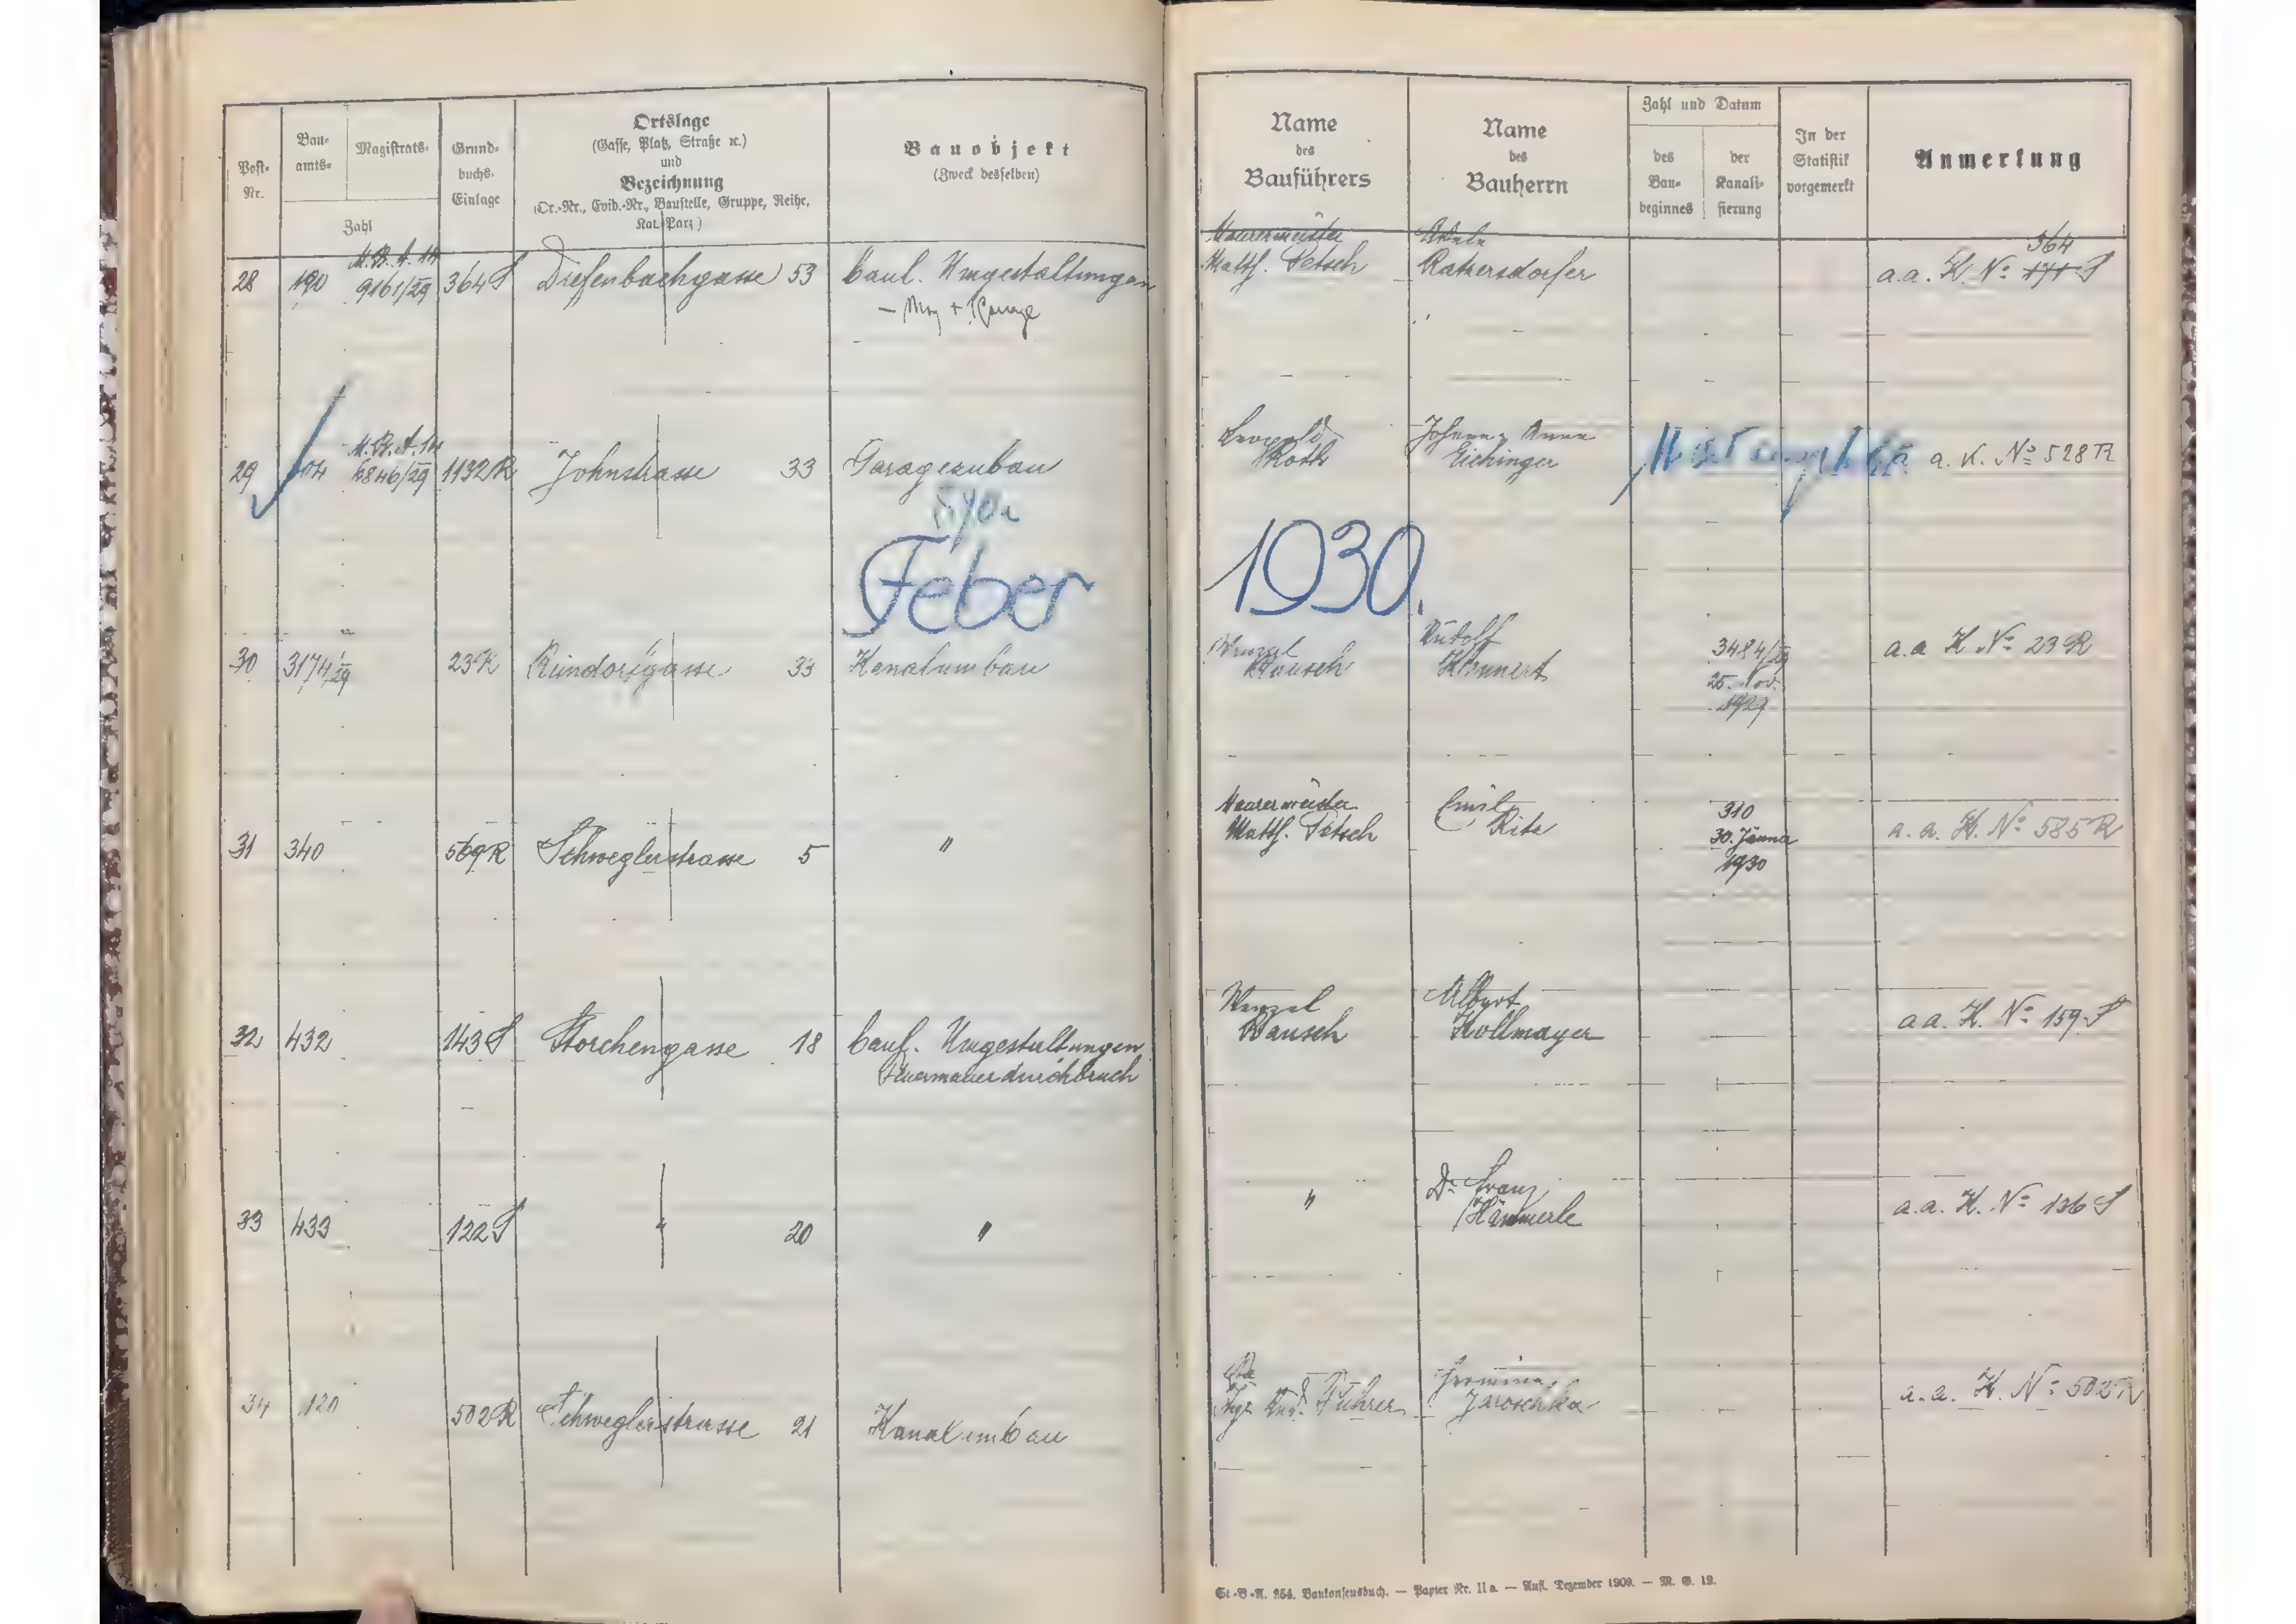 Post-Nr.
Bauamts-
Magistrats-
Zahl
Grundbuchs-Einlage
Ortslage
(Gasse, Platz, Straße ꝛc.)
und
Bezeichnung
(Or.-Nr., Evid.-Nr., Baustelle, Gruppe, Reihe,
Kat.-Parz.)
Bauobjekt
(Zweck desselben)
Name
des
Bauführers
Name
des
Bauherrn
Zahl und Datum
des
Bau-
beginnes
der
Kanali-
sierung
In der
Statistik
vorgemerkt
Anmerkung
M. B. A. 14
28 190 9161/29 364 S Diefenbachgasse 53 baul. Umgestaltungen
Maurermeister
Matth. Petsch
Adele
Ratzersdorfer
364
a. a. K. No 171 S
M. B. A. 14
29 6846/29 1132 R Johnstrasse 33 Garagezubau
Leopold
Roth
Johann, Anna
Eichinger
a. K. No 528 R
Feber 1930.
30 3174/29 23 R 33 Kanalumbau
Wenzel
Rausch
Rudolf
3484/29
25. Nov.
1929
a. a K No 23 R
31 340 569 R Schweglerstrasse 5 "
Maurermeister
Matth. Petsch
Emil
Ritz
310
30. Jänner
1930
a. a. K. No 585 R
32 432 143 S Storchengasse 18 baul. Umgestaltungen
Feuermauerdurchbruch
Wenzel
Rausch
Albert
Kollmayer
a a. K. No 159 S
33 433 122 S " 20 "
"
Dr Franz
Hämmerle
a. a. K. No 136 S
34 120 502 R Schweglerstrasse 21 Kanalumbau
Führer
Jaroschka
a. a. K. No 502 R
St.-B.-A. 254. Baukonsensbuch. — Papier Nr. II a. — Aufl. Dezember 1909. — M. G. 12.